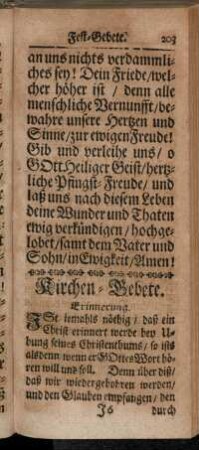 Fest-Gebete. 203
an uns nichts verdammli-
ches sey! Dein Friede/wel-
cher höher ist / denn alle
menschliche Vernunfft/be-
wahre unsere Hertzen und
Sinne/zur ewigen Freude!
Gib und verleihe uns/ o
GOtt Heiliger Geist/hertz-
liche Pfingst-Freude/ und
laß uns nach diesem Leben
deine Wunder und Thaten
ewig verkündigen / hochge-
lobet/samt dem Vater und
Sohn/in Ewigkeit/Amen!
Kirchen-Gebete.
Erinnerung.
ISt iemahls nöthig / daß ein
Christ erinnert werde bey U-
bung seines Christenthums/ so ists
alsdenn wenn er GOttes Wort hö-
ren will und soll. Denn über diß/
daß wir wiedergebohren werden/
und den Glauben empfangen / den
J 6 durch